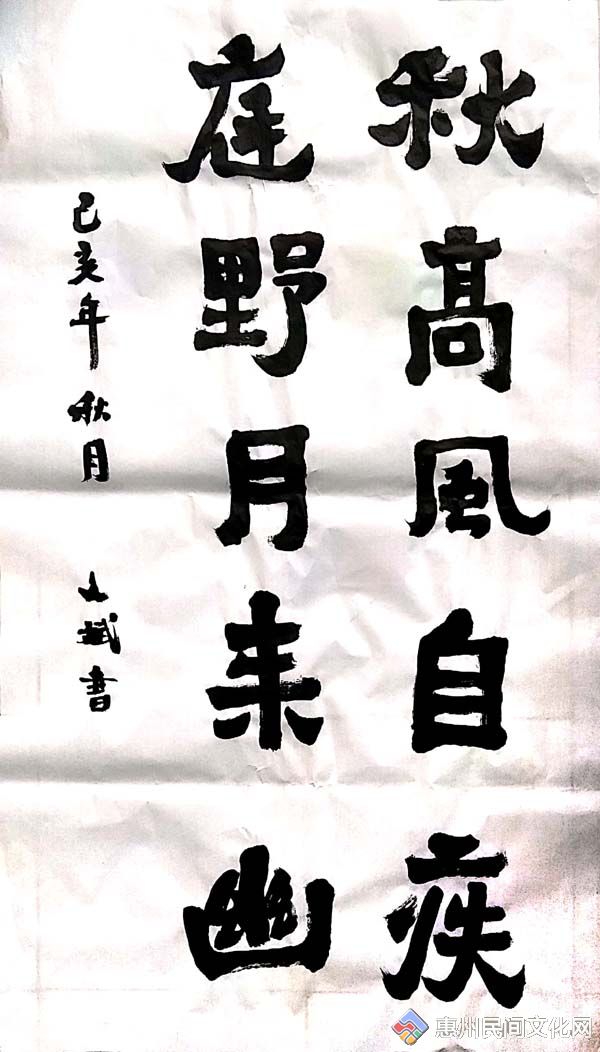 秋高風自疾
庭野月来幽
己亥年 秋月
斌書
惠州民间文化网